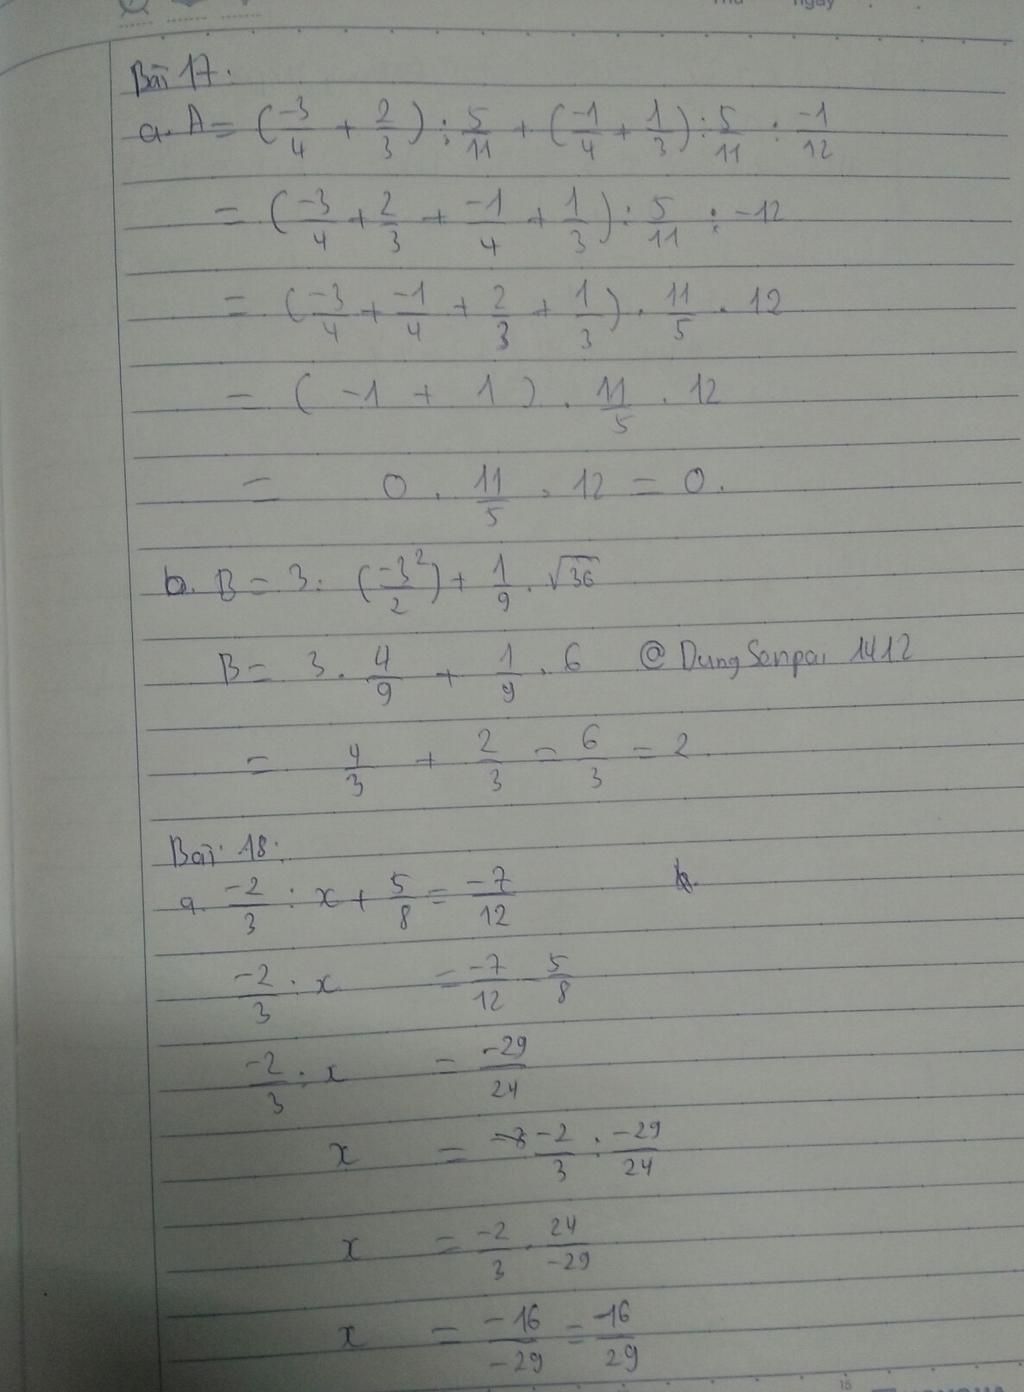 Thứ ngày
Bài 17.
a. A = (-3/4 + 2/3) : 5/11 + (-1/4 + 1/3) : 5/11 : -1/12
= (-3/4 + 2/3 + -1/4 + 1/3) : 5/11 : -12
= (-3/4 + -1/4 + 2/3 + 1/3) . 11/5 . 12
= (-1 + 1) . 11/5 . 12
= 0 . 11/5 . 12 = 0.
b. B = 3 : (-3²/2) + 1/9 . √36
B = 3 . 4/9 + 1/9 . 6 @DungSenpai 1412
= 4/3 + 2/3 = 6/3 = 2
Bài 18:
a. -2/3 : x + 5/8 = -7/12 b.
-2/3 : x = -7/12 - 5/8
-2/3 : x = -29/24
x = -2/3 : -29/24
x = -2/3 . 24/-29
x = -16/-29 = 16/29
15